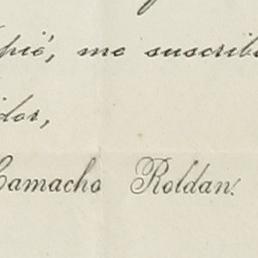 pié, me suscribo
dor,
Camacho Roldan.